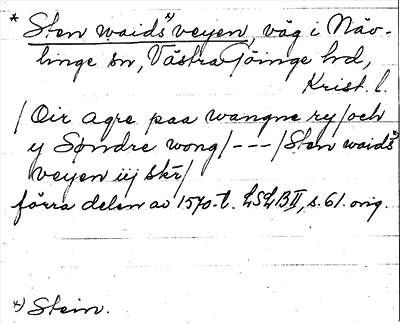 * Sten waids*) veyen, väg i Näv-
linge sn, Västra Göinge hd,
Krist. l.
/Oir agre paa wangne ry/och
y Søndre wong/---/Sten waids*)
veyen iij skr/
förra delen av 1570-t. LSLB II, s. 61. orig.
*) Stein.